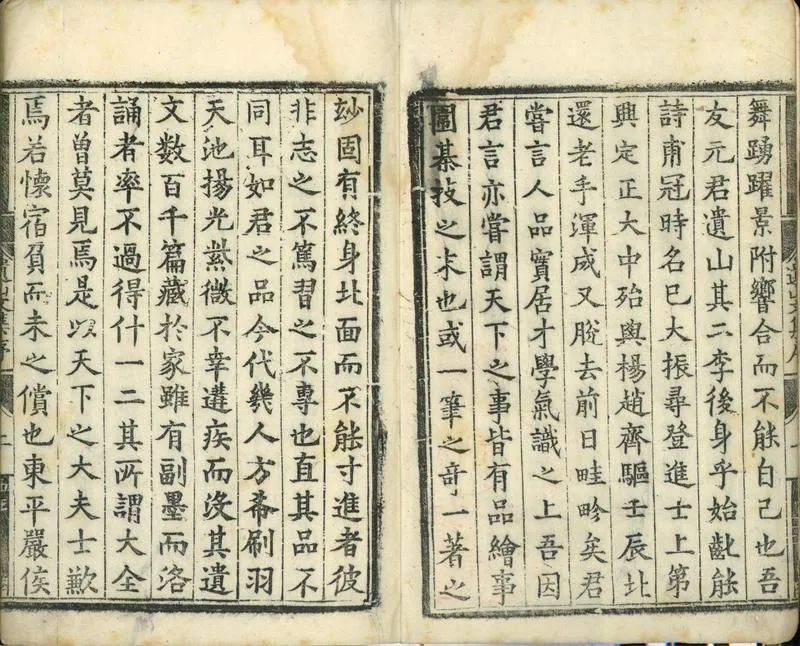 舞踴躍景附響合而不能自己也吾
友元君遺山其二李後身乎始齔能
詩甫冠時名已大振尋登進士上第
興定正大中殆與楊趙齊驅壬辰北
還老手渾成又脫去前日畦畛矣君
嘗言人品實居才學氣識之上吾因
君言亦嘗謂天下之事皆有品繪事
圍棊技之末也或一筆之竒一著之
玅固有終身北面而不能寸進者彼
非志之不篤習之不專也直其品不
同耳如君之品今代幾人方希刷羽
天池揚光蓺微不幸遘疾而沒其遺
文数百千篇藏於家雖有副墨而洛
誦者率不過得什一二其所謂大全
者曽莫見焉是以天下之大夫士歉
焉若懷宿負而未之償也東平嚴侯
遺山文集序